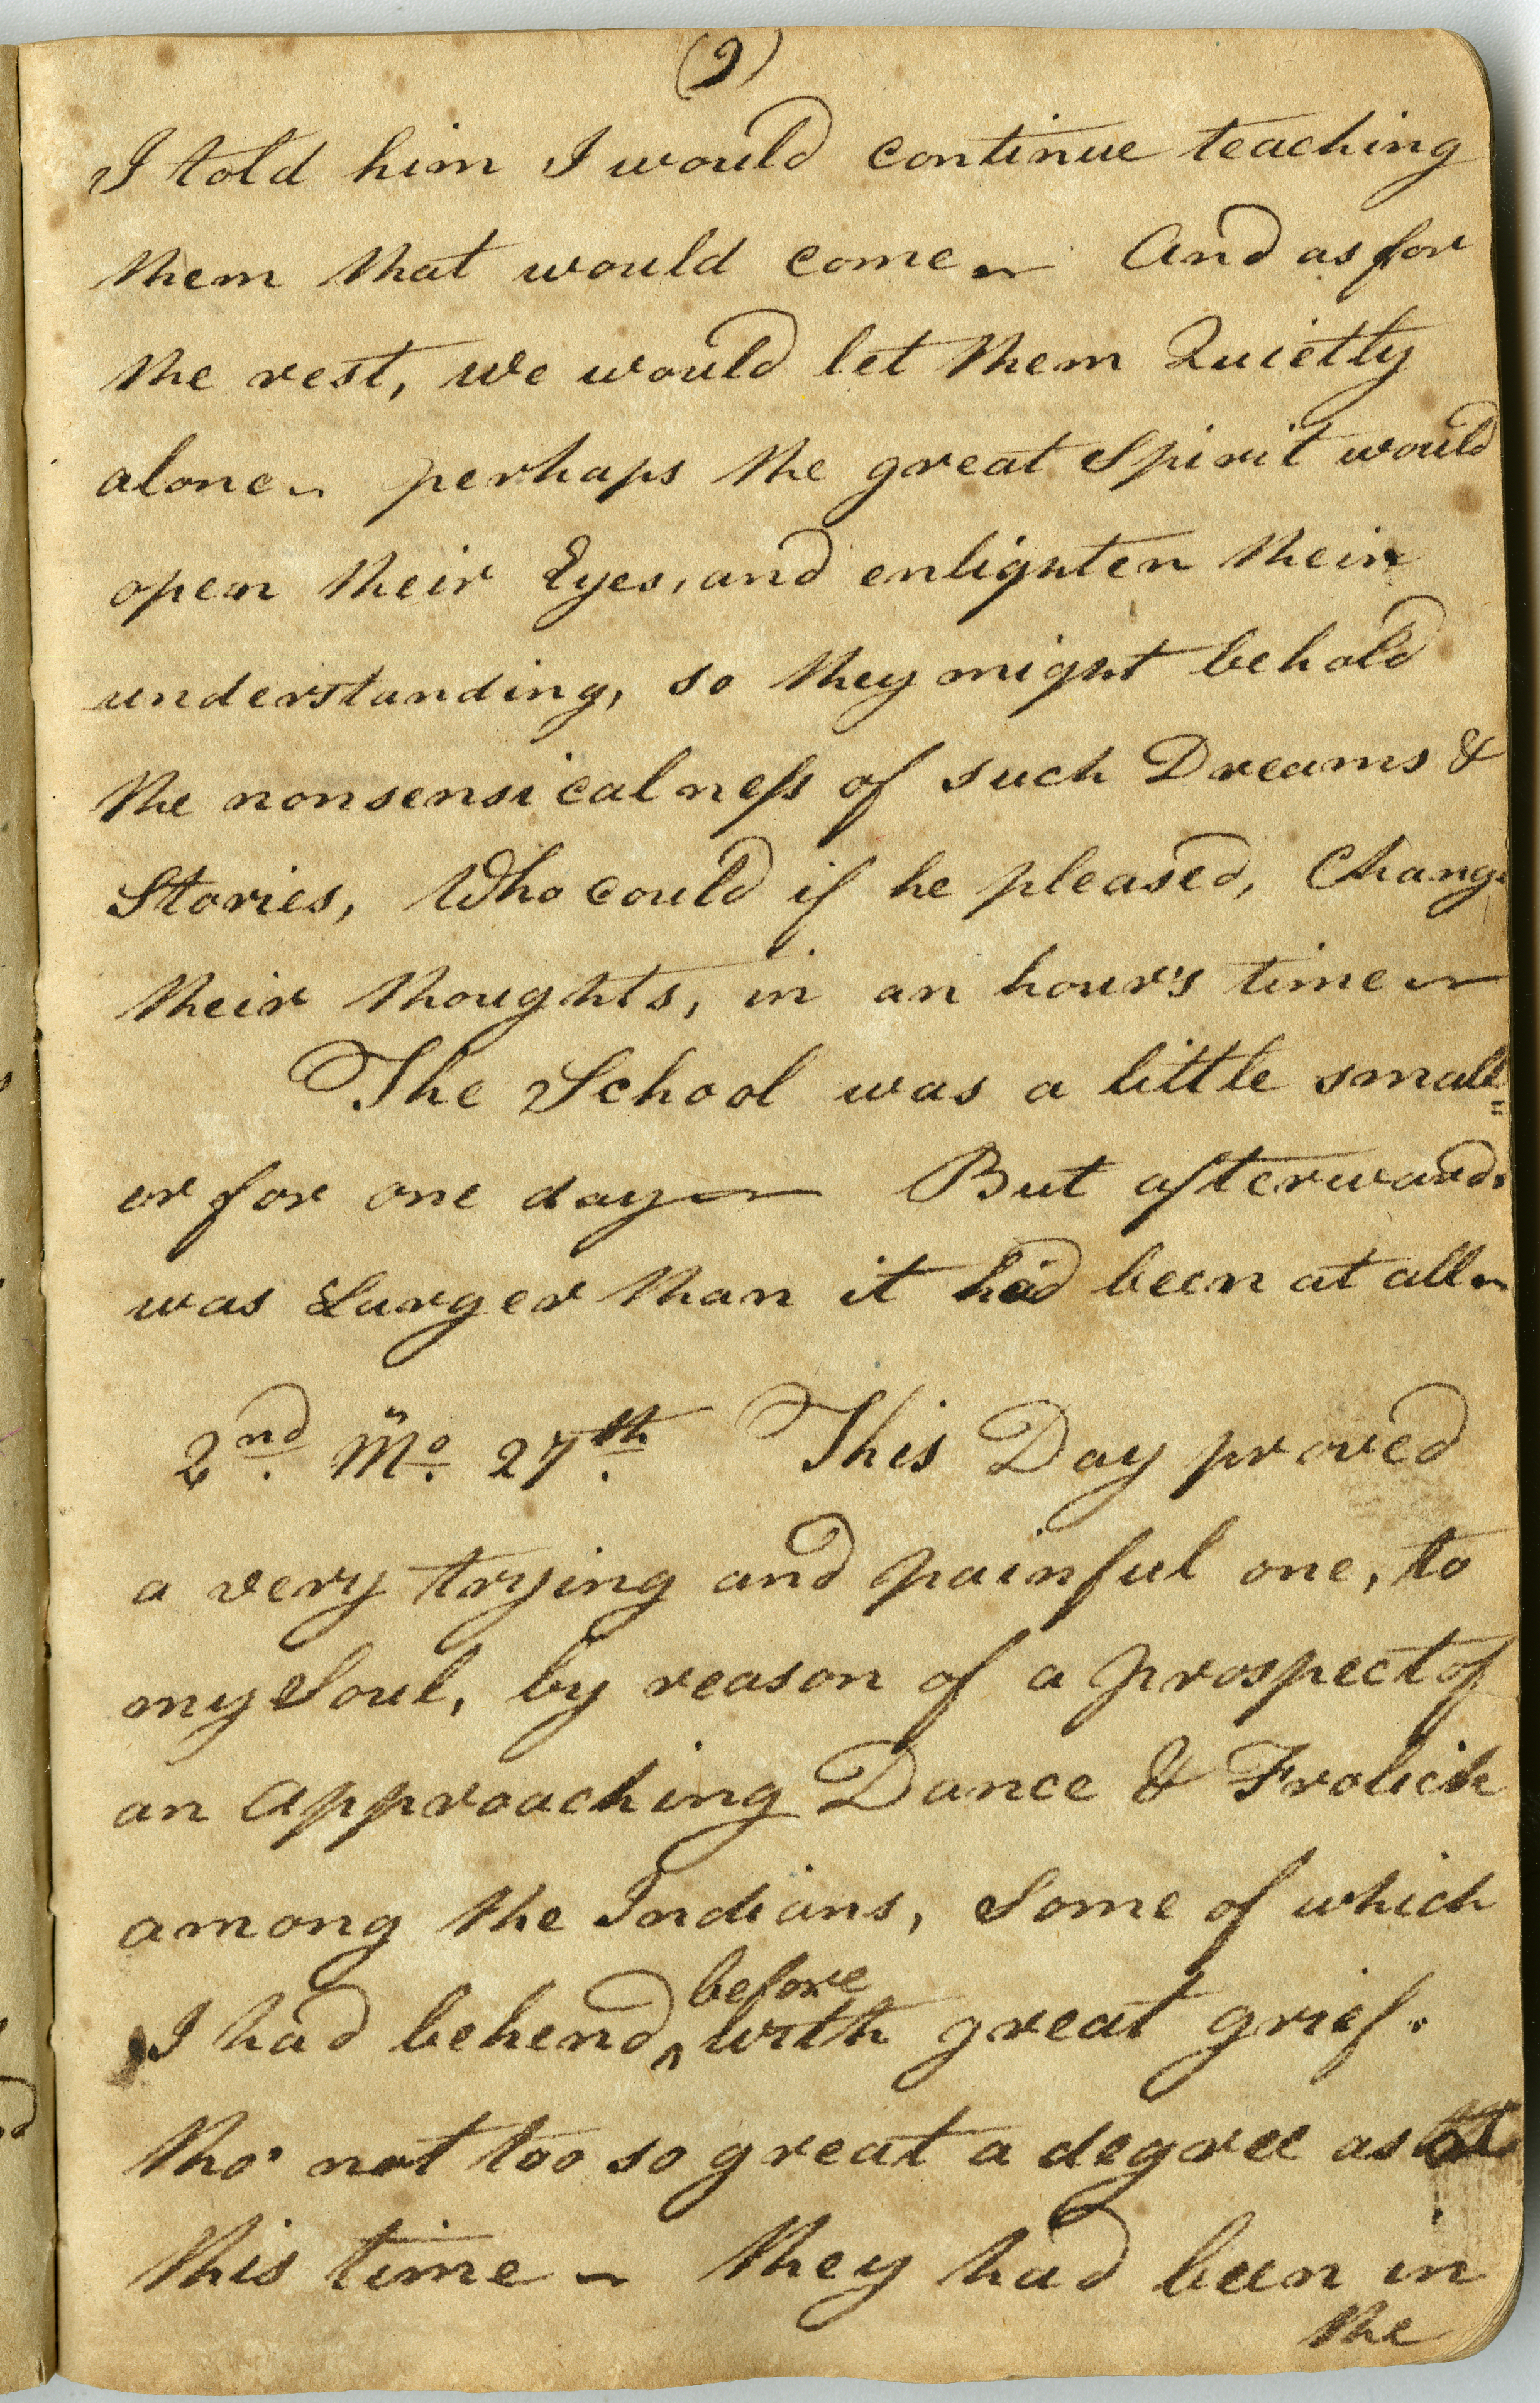 (9)
I told him I would continue teaching
them that would come ~ And as for
the rest, we would let them Quietly
alone ~ perhaps the great Spirit would
open their Eyes, and enlighten their
understanding, so they might behold
the nonsensicalness of such Dreams &
Stories, Who could if he pleased, Change
their thoughts, in an hour's time ~
The School was a little small=
er for one day ~ But afterwards
was Larger than it had been at all ~
2nd. Mo. 27th. This Day proved
a very trying and painful one, to
my Soul, by reason of a prospect of
an approaching Dance & Frolick
among the Indians, Some of which
before
I had behend ^ with great grief.
tho' not too so great a degree as at
this time ~ they had been in
the